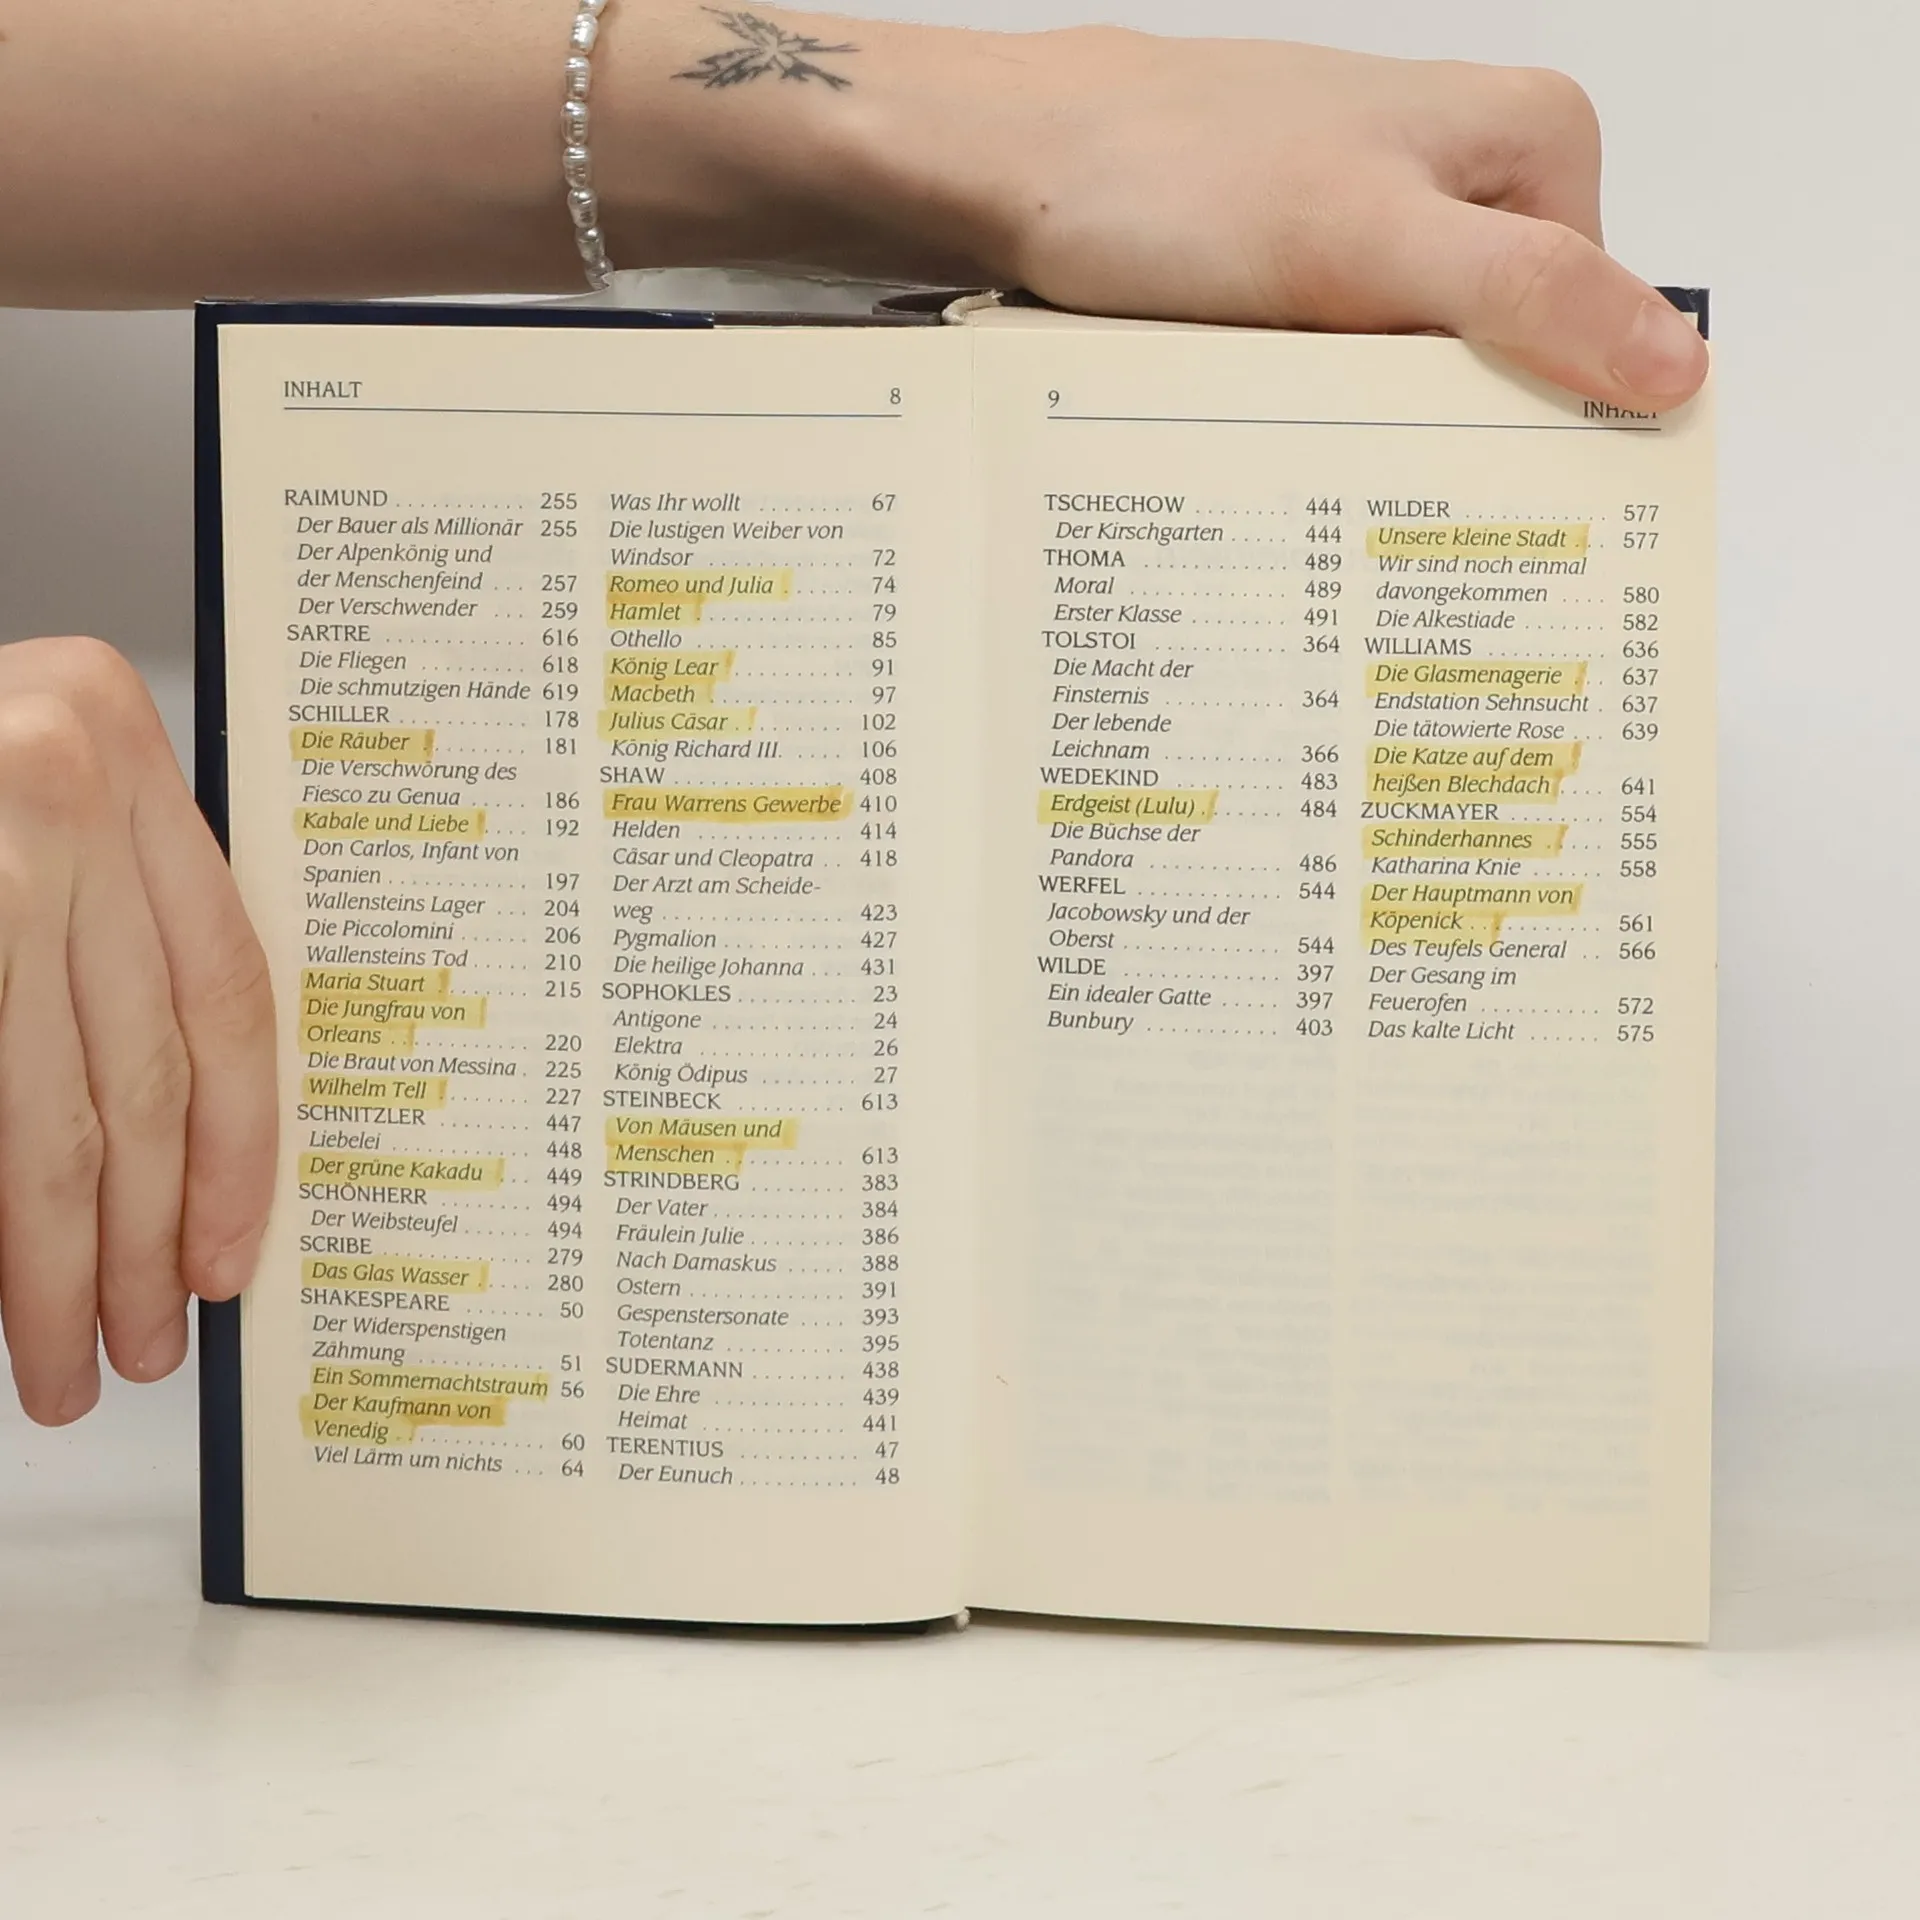 INHALT 8
RAIMUND ........... 255
Der Bauer als Millionär 255
Der Alpenkönig und
der Menschenfeind ... 257
Der Verschwender ... 259
SARTRE ............ 616
Die Fliegen ......... 618
Die schmutzigen Hände 619
SCHILLER ........... 178
Die Räuber ......... 181
Die Verschwörung des
Fiesco zu Genua ..... 186
Kabale und Liebe .... 192
Don Carlos, Infant von
Spanien ............ 197
Wallensteins Lager ... 204
Die Piccolomini ...... 206
Wallensteins Tod ..... 210
Maria Stuart ........ 215
Die Jungfrau von
Orleans ............ 220
Die Braut von Messina . 225
Wilhelm Tell ........ 227
SCHNITZLER ........ 447
Liebelei ............ 448
Der grüne Kakadu ... 449
SCHÖNHERR ........ 494
Der Weibsteufel ...... 494
SCRIBE ............. 279
Das Glas Wasser ..... 280
SHAKESPEARE ....... 50
Der Widerspenstigen
Zähmung ........... 51
Ein Sommernachtstraum 56
Der Kaufmann von
Venedig ............ 60
Viel Lärm um nichts ... 64
Was Ihr wollt ........ 67
Die lustigen Weiber von
Windsor ............ 72
Romeo und Julia ...... 74
Hamlet ............. 79
Othello ............. 85
König Lear .......... 91
Macbeth ............ 97
Julius Cäsar ......... 102
König Richard III. .... 106
SHAW .............. 408
Frau Warrens Gewerbe 410
Helden ............ 414
Cäsar und Cleopatra .. 418
Der Arzt am Scheide-
weg ............... 423
Pygmalion .......... 427
Die heilige Johanna ... 431
SOPHOKLES ......... 23
Antigone ........... 24
Elektra ............ 26
König Ödipus ........ 27
STEINBECK ......... 613
Von Mäusen und
Menschen .......... 613
STRINDBERG ........ 383
Der Vater ........... 384
Fräulein Julie ........ 386
Nach Damaskus ..... 388
Ostern ............. 391
Gespenstersonate .... 393
Totentanz .......... 395
SUDERMANN ........ 438
Die Ehre ........... 439
Heimat ............ 441
TERENTIUS ......... 47
Der Eunuch ......... 48
9 INHALT
TSCHECHOW ........ 444
Der Kirschgarten ..... 444
THOMA ............ 489
Moral ............. 489
Erster Klasse ........ 491
TOLSTOI ........... 364
Die Macht der
Finsternis .......... 364
Der lebende
Leichnam .......... 366
WEDEKIND ......... 483
Erdgeist (Lulu) ....... 484
Die Büchse der
Pandora ........... 486
WERFEL ............ 544
Jacobowsky und der
Oberst ............. 544
WILDE ............. 397
Ein idealer Gatte ..... 397
Bunbury ........... 403
WILDER ............ 577
Unsere kleine Stadt ... 577
Wir sind noch einmal
davongekommen .... 580
Die Alkestiade ....... 582
WILLIAMS .......... 636
Die Glasmenagerie ... 637
Endstation Sehnsucht . 637
Die tätowierte Rose ... 639
Die Katze auf dem
heißen Blechdach .... 641
ZUCKMAYER ........ 554
Schinderhannes ..... 555
Katharina Knie ...... 558
Der Hauptmann von
Köpenick ........... 561
Des Teufels General .. 566
Der Gesang im
Feuerofen .......... 572
Das kalte Licht ...... 575